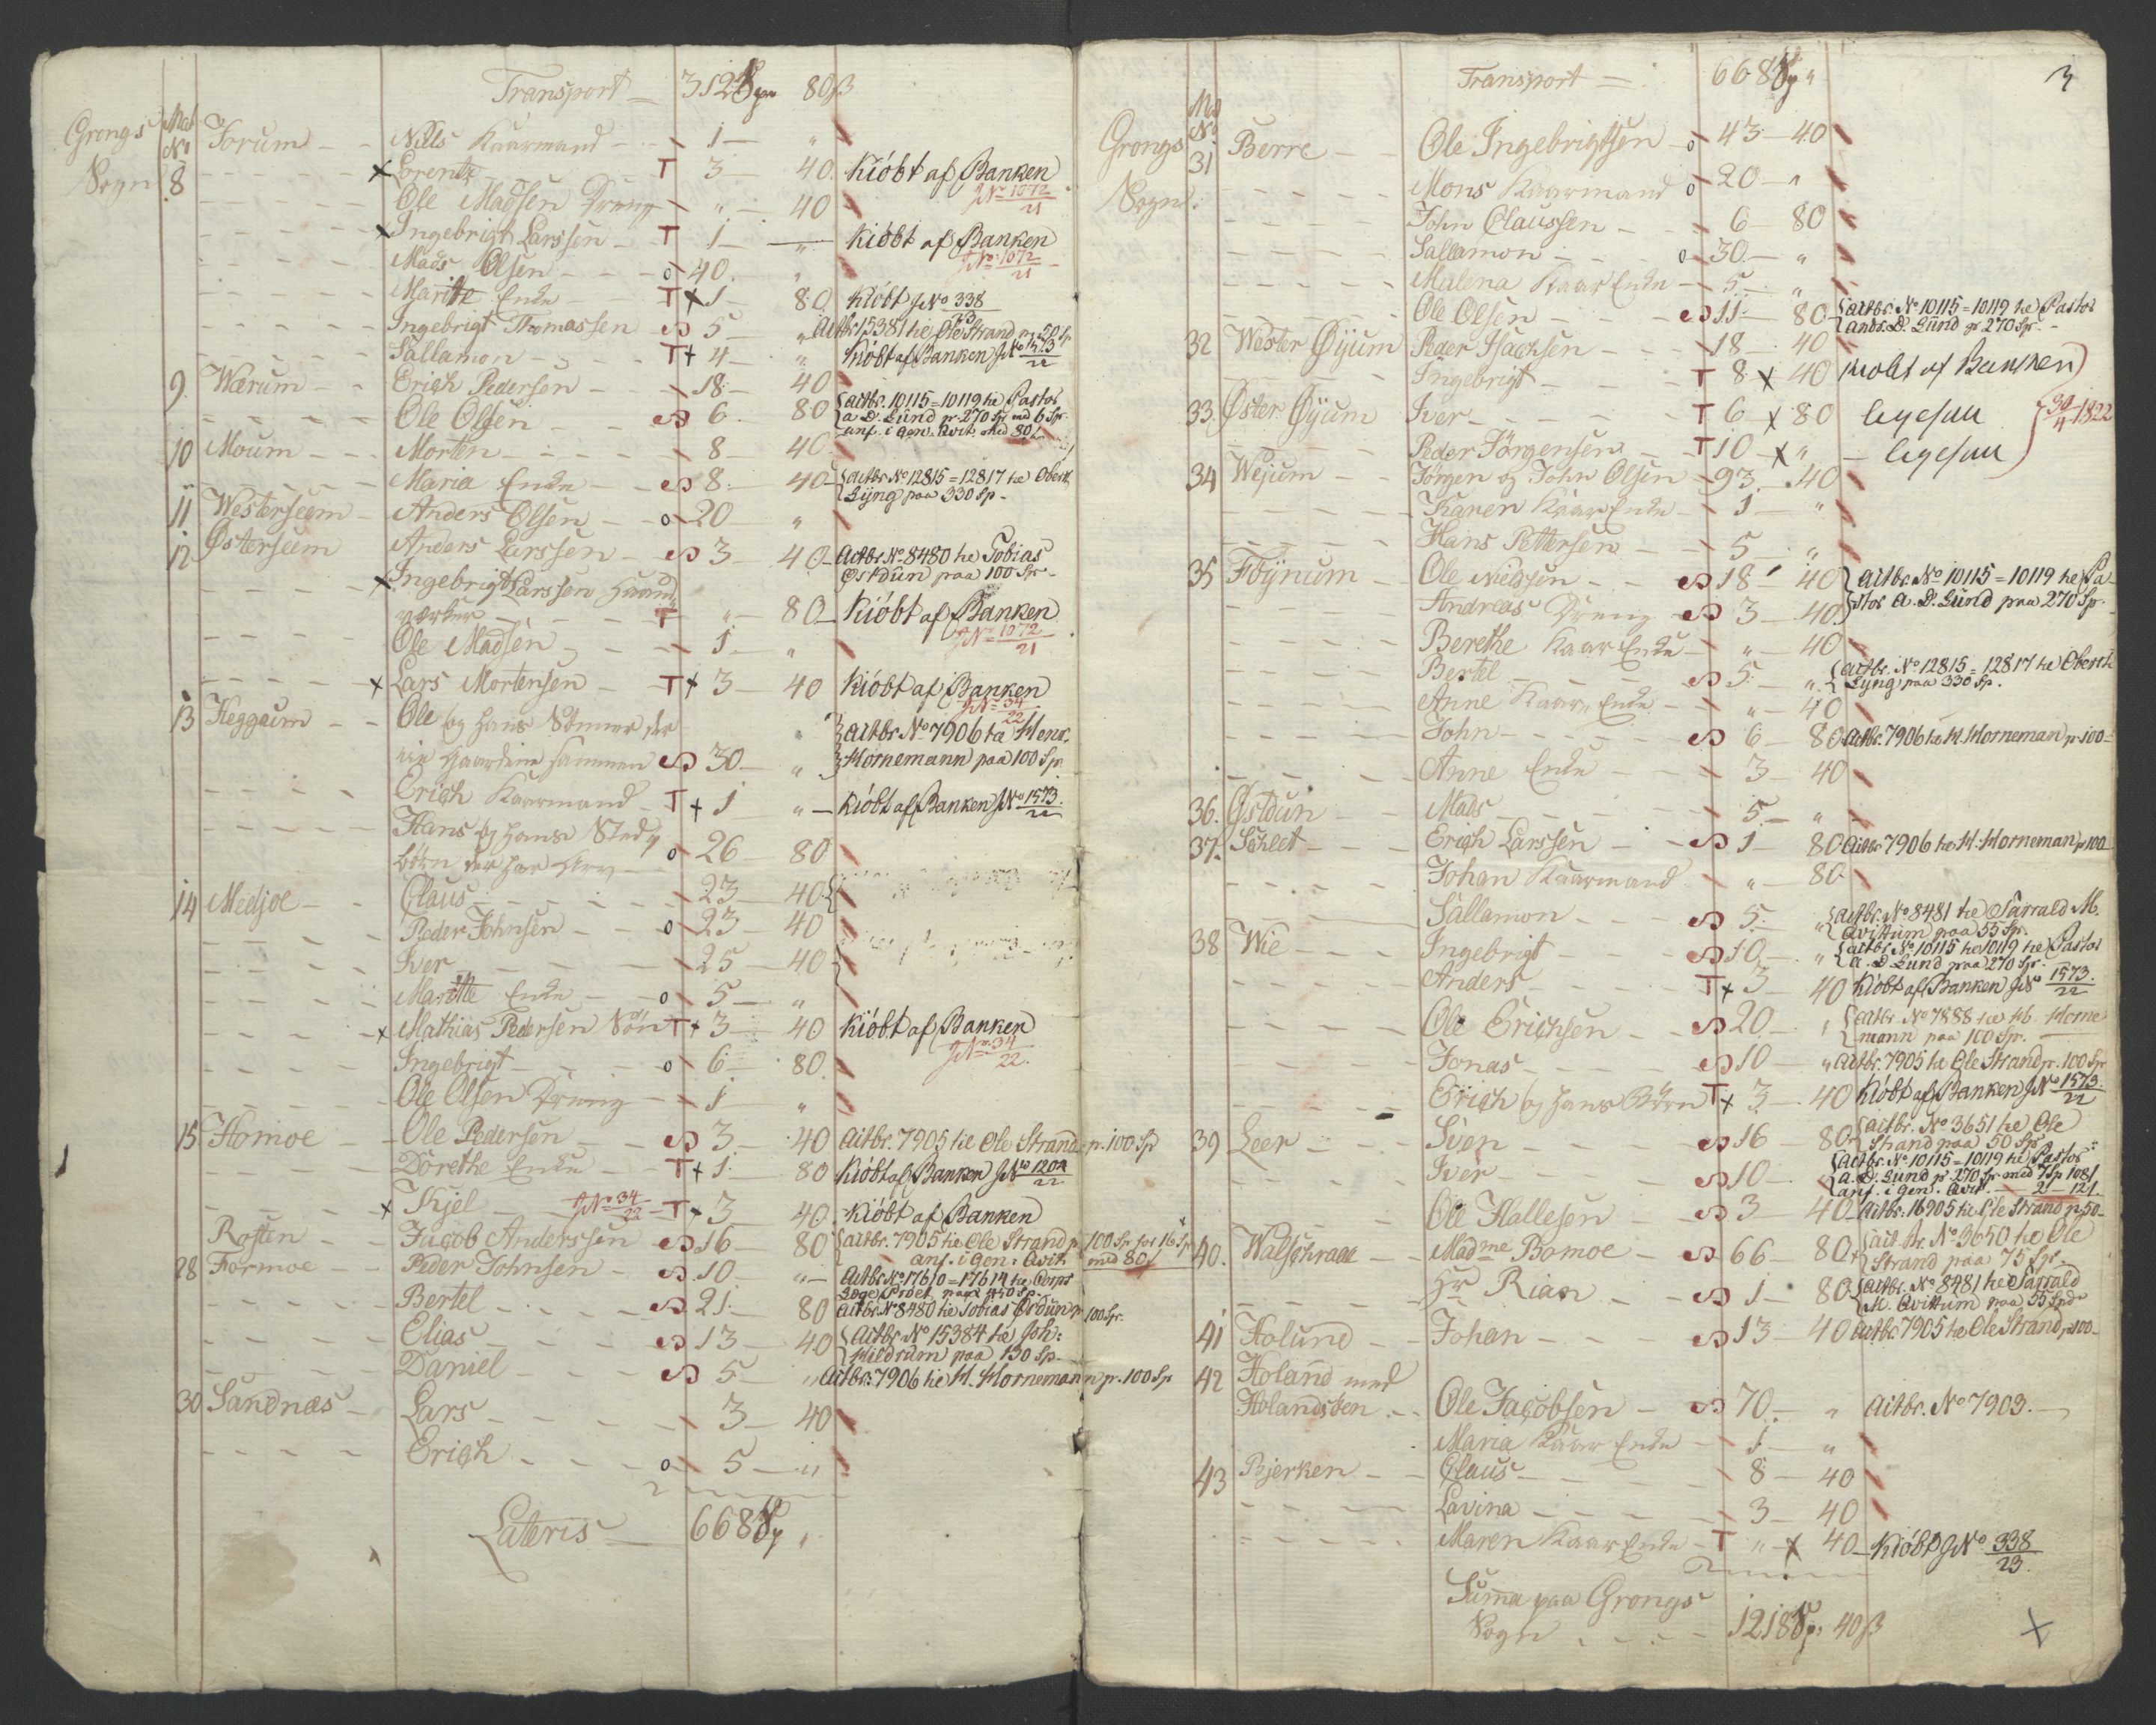 Transport = 312 Sp 80 ß
Grongs Sogn
Mat No
8 Forum - - Nills Kaarmand - - 1 - "
- - - - x Lorentz - - T 3 40. Kiöbt af Banken JNo 1072/21
- - - - Ole Madsen Dreng - " - 40
- - - - x Ingebrigt Larssen - T 1 - " - Kiöbt af Banken JNo 1072/21
- - - - Mads Olsen - - - o 40. "
- - - - Marite Enke - T x 1 - 80 Kiöbt JNo 338/23
- - - - Ingebrigt Thomassen - S 5 - " Aitbr. 15381 he Ole Strand p. 50 Sp
- - - - Sallamon - - - T + 4 - " Kiöbt af Banken JNo 1573/22
9. Wærum - - Erich Pedersen - 18 - 40
- - - - Ole Olsen - - S 6. 80 {aitbr. 10115 = 10119 he Pastor
a. D. Lund p. 270 Sp. med 6 Sp.
anf. i Gen. Qvit. med 80 ß
10 Moum - - - Morten - - - - 8 - 40.
- - - - Maria Enke - - S 8. - 40 - {aitbr No 12815 = 12817 he Oberst
Lyng paa 330 Sp -
11 Westerseem - Anders Olsen - - o 20 "
12 Østerseem Anders Larssen - S 3 - 40 - Aitbr No 8480 he Tobias
Østdun paa 100 Sp -
- - - - x Ingebrigt Larssen Haand
værker - - - T " - 80 - Kiöbt af Banken JNo 1072/21
- - - - Ole Madsen - - - 1. - "
- - - - x Lars Mortensen - - T + 3 - 40 Kiöbt af Banken JNo 34/22
13 Heggeim - - Ole og hans Sönner der " {aitbr No 7906 ta Henr.
eie Gaarden sammen S 30 - " Hornemann paa 100 Sp
- - - - Erich Kaarmand - T + 1 " - Kiöbt af Banken JNo 1573/22
- - - - Hans og hans Sted
börn der har Arv - o 26 - 80
14 Medjoe - - Claus - - - - - 23 - 40 {
- - - - Peder Johnsen - - o 23 - 40
- - - - Iver - - - - - 25 - 40
- - - - Maritte Enke - - o 5 - "
- - - - x Mathias Pedersen Sön T + 3 - 40 Kiöbt af Banken JNo 34/22.
- - - - Ingebrigt - - - o 6 - 80
- - - - Ole Olsen Dreng - - 1 "
15 Homoe - - Ole Pedersen - - S 3 - 40 Aitbr. 7905 he Ole Strand p. 100 Sp
- - - - Dorethe Enke - - T + 1. 80 Kiöbt af Banken JNo 1204/22
- - - - x Kjel - - JNo 34/22 - T + 3 - 40. Kiöbt af Banken
Rosten - - Jacob Anderssen S 16 - 80 {aitbr. 7905 he Ole Strand p 100 Sp for 16 Sp
anf. i Gen. Qvit. med 80 ß
28 Formoe - - Peder Johnsen - S 10 - " - Aitbr No 17610 = 17614 he Corps
- - - - Bertel - - - - S 21. 80 aitbr No 8480 he Tobias Østdun p 100 Sp.
- - - - Elias - - - - S 13 - 40 {Aitbr. No 15384 he Joh:
Mildrum paa 130 Sp -
- - - - Daniel - - - - S 5 - " Aitbr: 7906 he H. Horneman p. 100 Sp
30 Sandnæs - Lars - - - - 3 - 40
- - - - Erich - - - o 5 - "
Lateris = 668 Sp "
3
Transport = 668 Sp "
Grongs Sogn.
Mat No
31 Berre - - Ole Ingebrigtsen - o 43 - 40
- - - - Mons Kaarmand o 20 - "
- - - - John Claussen - - 6 - 80
- - - - Sallamon - - - o 30. - "
- - - - Malena Kaar Enke - 5. - "
- - - - Ole Olsen - - - S 11. - 80 {aitbr. No 10115 = 10119 he Pastor
Andr. D. Lund p 270 Sp. -
32 Wester Øyum Peder Isachsen - - 18 - 40
- - - - Ingebrigt - - - T 8 x 40 kiobt af Banken
33. Øster Øyum Iver - - - - T 6 x 80 ligesaa 30/4 1822
- - - - Peder Jörgensen - T 10 - x " - ligesaa
34 Wejum - - Jörgen og John Olsen - 93. - 40
- - - - Karen Kaar Enke - 1 - "
- - - - Hans Pettersen - - 5 - "
35 Föynum - - Ole Nielssen - - S 18 - 40 {aitbr. No 10115 = 10119 he Pa
- - - - Andreas Dreng - S 3 - 40. stor A. D. Lund paa 270 Sp.
- - - - Berethe Kaar Enke - " - 40
- - - - Bertel - - - - S 5. - " {aitbr. No 12815 = 12817 he Oberstl
Lyng paa 330 Sp.
- - - - Anne Kaar Enke - - " - 40
- - - - John - - - - S 6 - 80 aitbr. 7906 he H. Horneman p. 100 -
- - - - Anne Enke - - - 3 - 40
36. Østdun - - Mads - - - - - 5. - "
37. Sählet - - - Erich Larssen - - S 1 - 80 Aitbr 7906 he H. Horneman p 100
- - - - Johan Kaarmand " - 80
- - - - Sallamon - - - S 5. - " {aitbr. No 8481 he Sarrald M.
Qvittum paa 55 Sp.
38 Wie - - - Ingebrigt - - - S 10 - " {aitbr No 10115 he 10119 he Pastor
a. D. Lund paa 270 Sp. -
- - - - Anders - - - - T + 3 - 40 Kiöbt af Banken JNo 1573/22
- - - - Ole Erichsen - - S 20 - " {aitbr. No 7888 he Hb. Horne
mann paa 100 Sp. -
- - - - Jonas - - - - S 10 - " Aitbr. 7905 he Ole Strand p. 100 Sp
- - - - Erich og hans Börn T + 3 - 40 Kiöbt af Banken JNo 1573/22
39 Leer - - - Sven - - - - S 16 - 80 {aitbr. No 3651 he Ole
Strand paa 50 Sp.
- - - - Iver - - - - S 10 - {Aitbr. No 10115 = 10119 he Pastor
a. D. Lund p 270 Sp. med 7 Sp 108 ß
anf. i Gen. Qvit. - 2 - 12 ß
- - - - Ole Hallesen - - S 3 - 40 - aitbr. 16905 he Ole Strand p 50 -
40. Walschraae - - Madme Bomoe - - S 66 - 80 {ait br. No 3650 he Ole
Strand paa 75 Sp -
- - - - Hr Rian - - - S 1 - 80 {Aitbr. No 8481 he Sarrald
M. Qvittum paa 55 Spd
41 Holund - - Johan - - - S 13 - 40 Aitbr. 7905 he Ole Strand p 100 -
42 Holand med
Holandsken - - Ole Jacobsen - S 70. - " Aitbr. No 7903. -
Maria Kaar Enke - 1 - "
43 Bjerken - - Claus - - - - 8 - 40
- - - - Lavina - - - - 3 - 40
- - - - Maren Kaar Enke - T " - x 40 - Kiöbt JNo 338/23.
Summa paa Grongs
Sogn - - - 1218 Sp: 40 ß
x